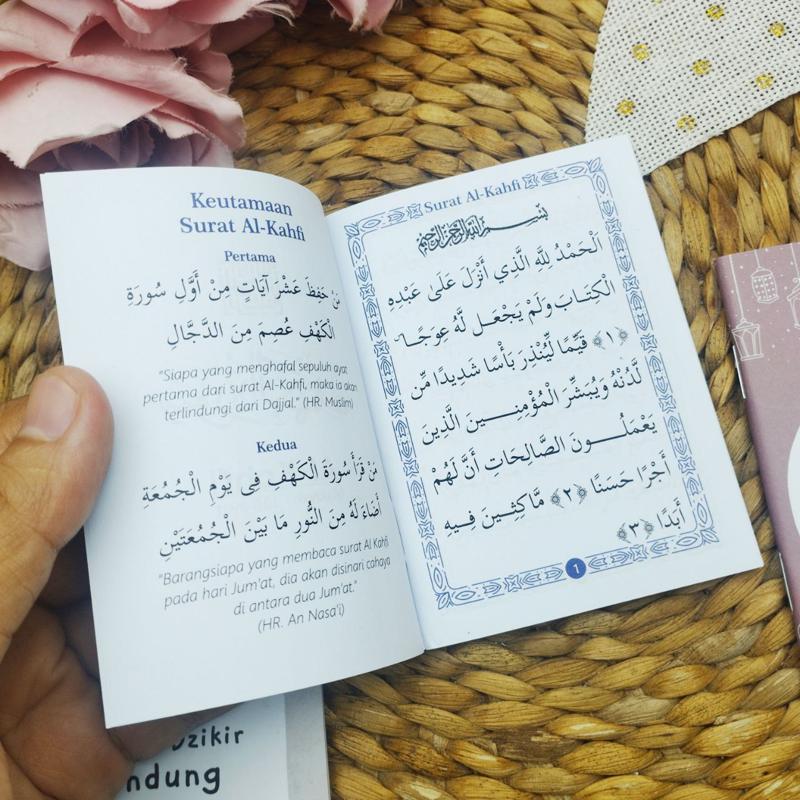 Keutamaan
Surat Al-Kahfi
Pertama
مَنْ حَفِظَ عَشْرَ آيَاتٍ مِنْ أَوَّلِ سُورَةِ
الْكَهْفِ عُصِمَ مِنَ الدَّجَّالِ
"Siapa yang menghafal sepuluh ayat
pertama dari surat Al-Kahfi, maka ia akan
terlindungi dari Dajjal." (HR. Muslim)
Kedua
مَنْ قَرَأَ سُورَةَ الْكَهْفِ فِى يَوْمِ الْجُمُعَةِ
أَضَاءَ لَهُ مِنَ النُّورِ مَا بَيْنَ الْجُمُعَتَيْنِ
"Barangsiapa yang membaca surat Al Kahfi
pada hari Jum'at, dia akan disinari cahaya
di antara dua Jum'at."
(HR. An Nasa'i)
Surat Al-Kahfi
بِسْمِ اللَّهِ الرَّحْمَنِ الرَّحِيمِ
اَلْحَمْدُ لِلَّهِ الَّذِي أَنْزَلَ عَلَىٰ عَبْدِهِ
الْكِتَابَ وَلَمْ يَجْعَل لَّهُ عِوَجًا
﴿١﴾ قَيِّمًا لِّيُنْذِرَ بَأْسًا شَدِيدًا مِّن
لَّدُنْهُ وَيُبَشِّرَ الْمُؤْمِنِينَ الَّذِينَ
يَعْمَلُونَ الصَّالِحَاتِ أَنَّ لَهُمْ
أَجْرًا حَسَنًا ﴿٢﴾ مَّاكِثِينَ فِيهِ
أَبَدًا ﴿٣﴾
1
ndung